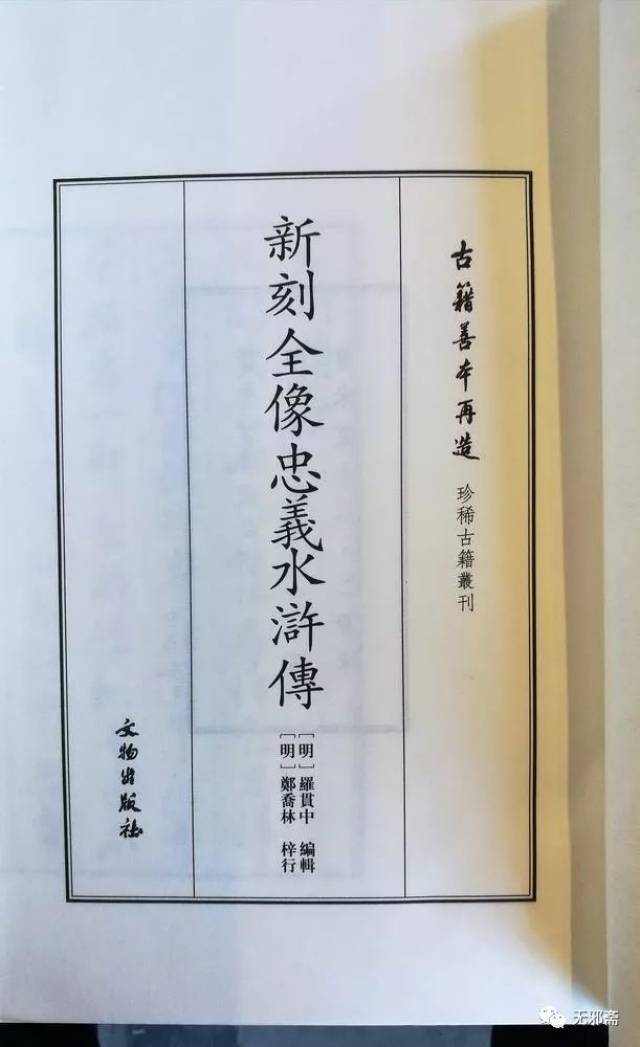 古籍善本再造 珍稀古籍叢刊
新刻全像忠義水滸傳
[明]羅貫中 編輯
[明]鄭喬林 梓行
文物出版社
无邪斋